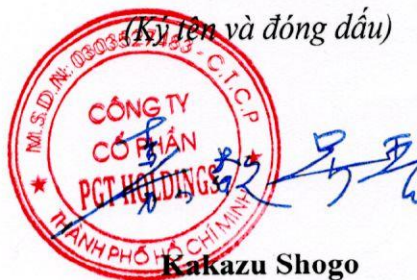 (Ký tên và đóng dấu)
M.S.D.N: 0303527483 - C.T.C.P
CÔNG TY
CỔ PHẦN
PGT HOLDINGS
THÀNH PHỐ HỒ CHÍ MINH
Kakazu Shogo